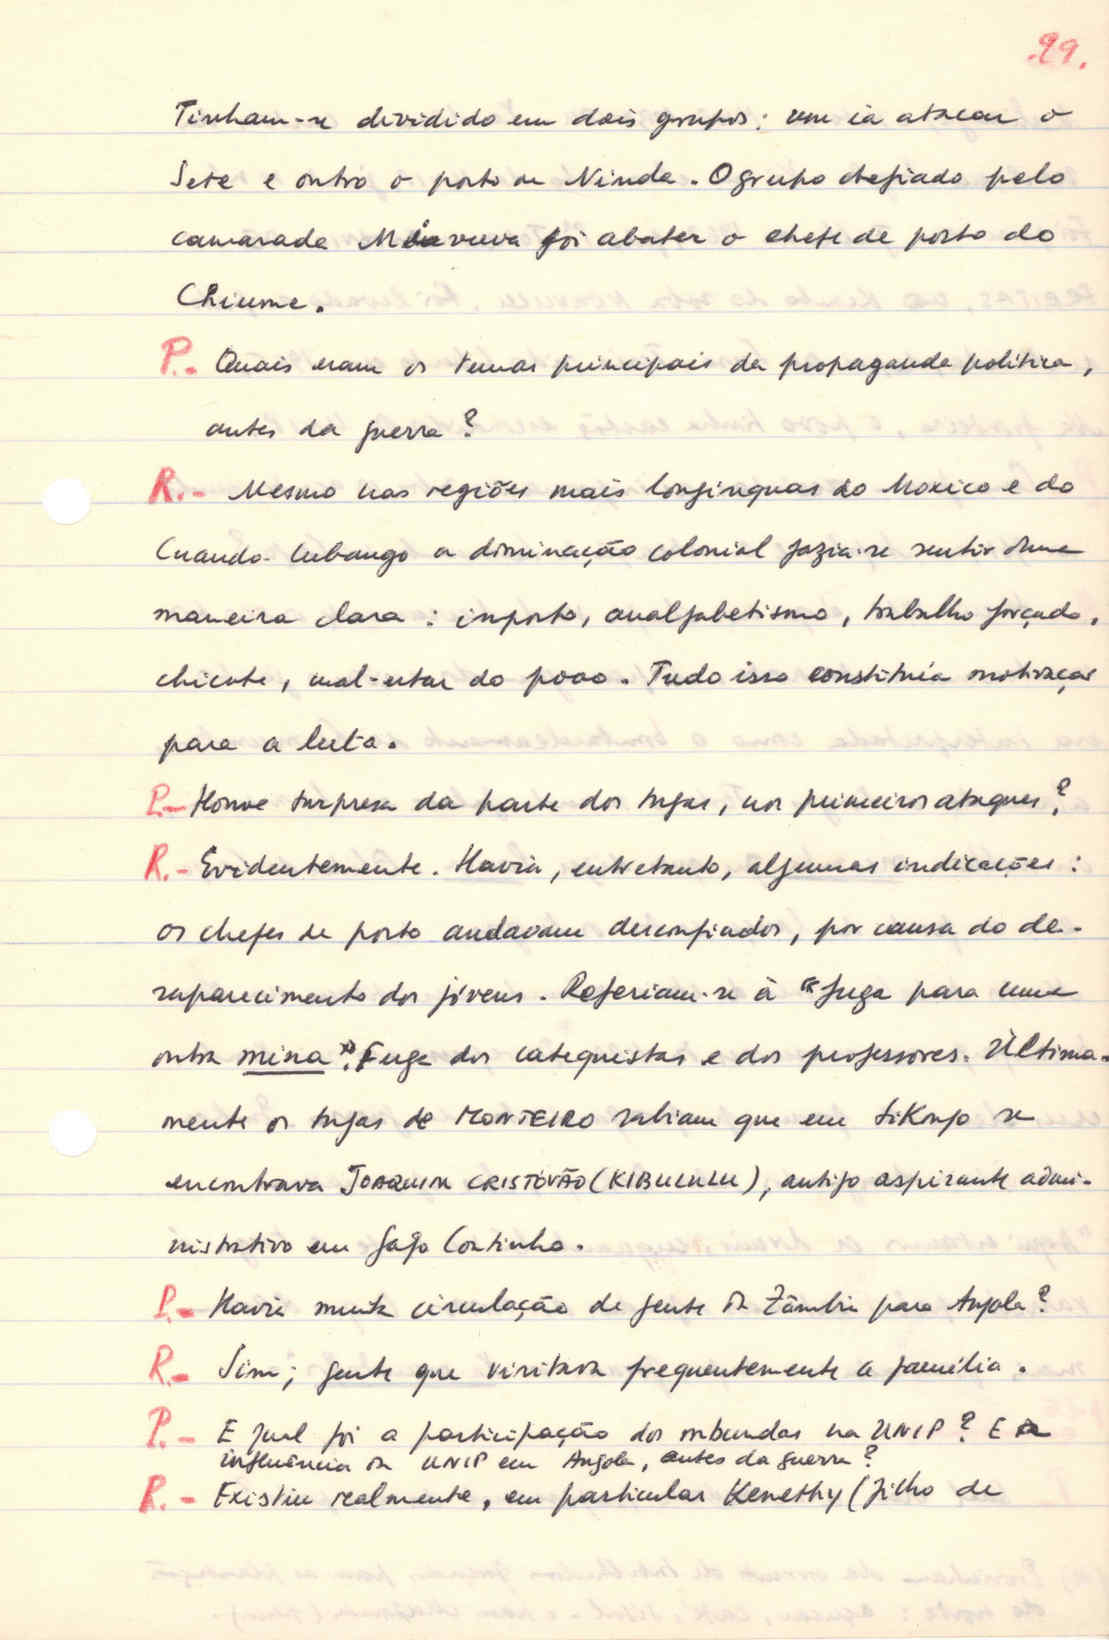 .29.
Tinham-se dividido em dois grupos: um ia atacar o
Sete e outro o posto de Ninda. O grupo chefiado pelo
camarada foi abater o chefe de posto do
Chiume.
P.- Quais eram os temas principais da propaganda política,
antes da guerra?
R.- Mesmo nas regiões mais longínquas do Moxico e do
Cuando-Cubango a dominação colonial fazia-se sentir duma
maneira clara: imposto, analfabetismo, trabalho forçado,
chicote, mal-estar do povo. Tudo isso constituía motivação
para a luta.
P.- Houve surpresa da parte dos tugas, nos primeiros ataques?
R.- Evidentemente. Havia, entretanto, algumas indicações:
os chefes de posto andavam desconfiados, por causa do de-
saparecimento dos jóvens. Referiam-se à "fuga para uma
outra mina". Fuga dos catequistas e dos professores. Última-
mente os tugas de MONTEIRO sabiam que em Sikongo se
encontrava JOAQUIM CRISTÓVÃO (KIBULULU), antigo aspirante admi-
nistrativo em Gago Coutinho.
P.- Havia muita circulação de gente da Zâmbia para Angola?
R.- Sim; gente que visitava frequentemente a família.
P.- E qual foi a participação dos mbundas na UNIP? E a
influência da UNIP em Angola, antes da guerra?
R.- Existiu realmente, em particular Kenethy (filho de